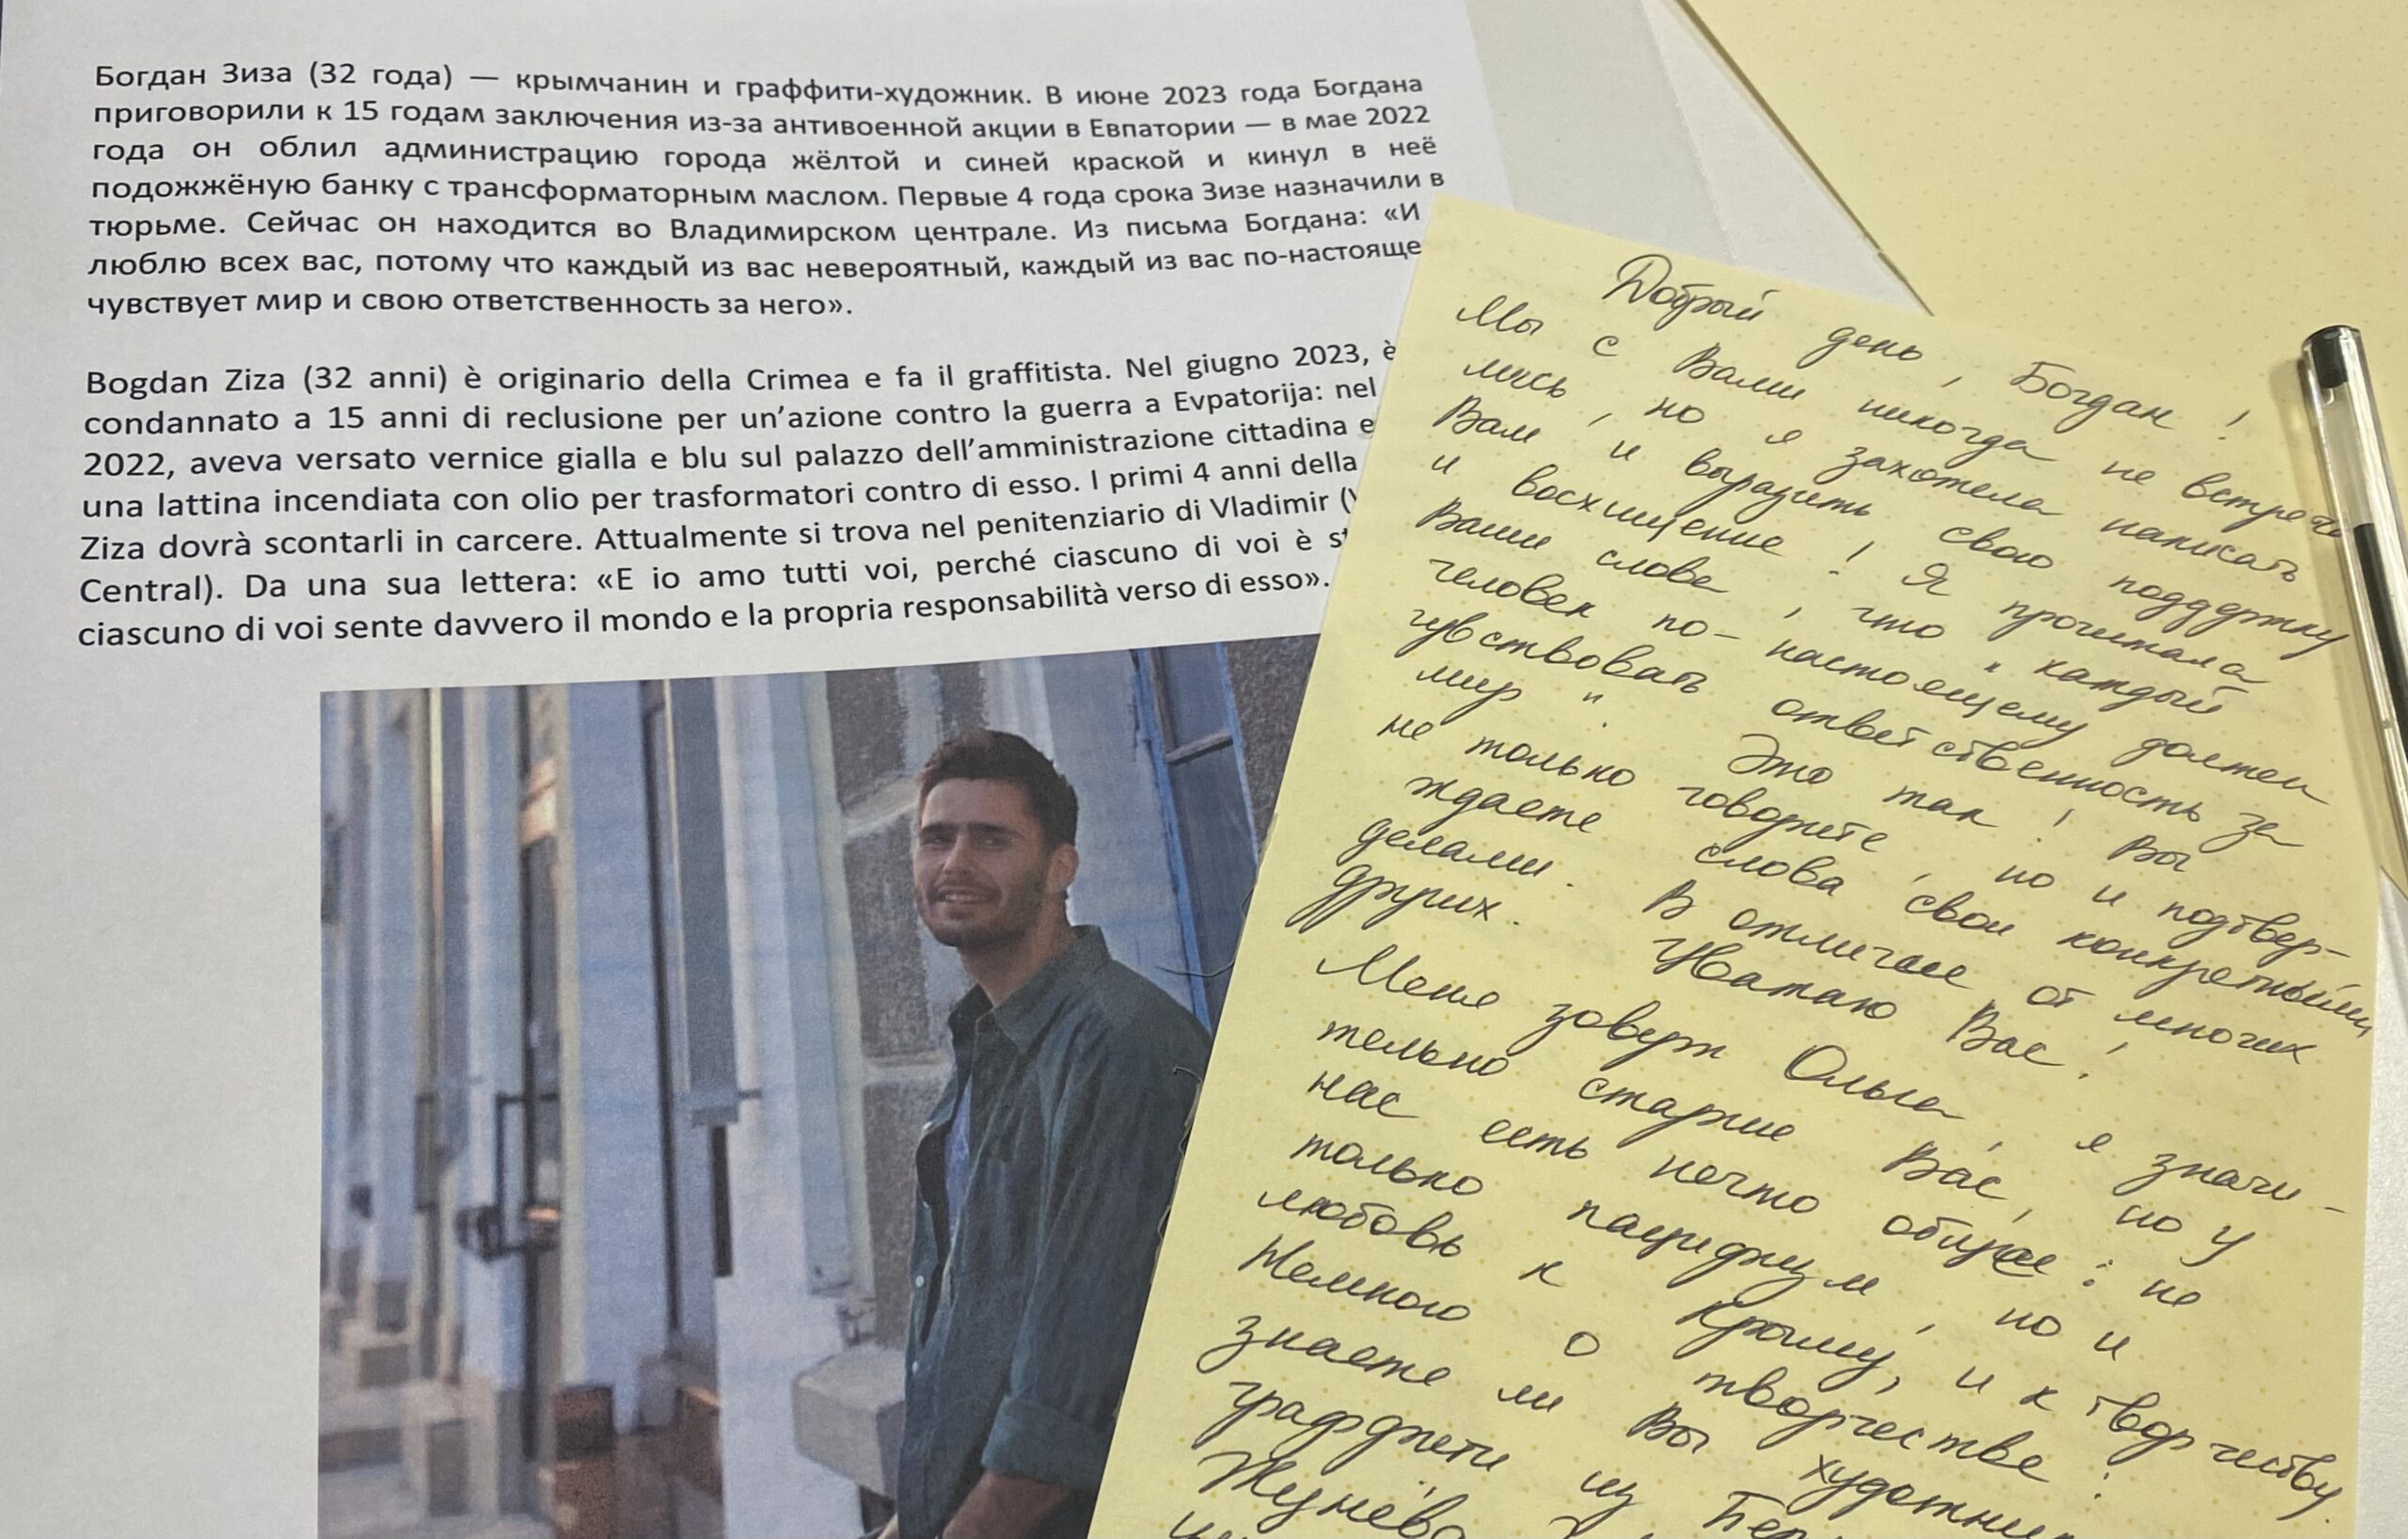 Богдан Зиза (32 года) — крымчанин и граффити-художник. В июне 2023 года Богдана
приговорили к 15 годам заключения из-за антивоенной акции в Евпатории — в мае 2022
года он облил администрацию города жёлтой и синей краской и кинул в неё
подожжёную банку с трансформаторным маслом. Первые 4 года срока Зизе назначили в
тюрьме. Сейчас он находится во Владимирском централе. Из письма Богдана: «И
люблю всех вас, потому что каждый из вас невероятный, каждый из вас по-настояще
чувствует мир и свою ответственность за него».
Bogdan Ziza (32 anni) è originario della Crimea e fa il graffitista. Nel giugno 2023, è
condannato a 15 anni di reclusione per un’azione contro la guerra a Evpatorija: nel
2022, aveva versato vernice gialla e blu sul palazzo dell’amministrazione cittadina e
una lattina incendiata con olio per trasformatori contro di esso. I primi 4 anni della
Ziza dovrà scontarli in carcere. Attualmente si trova nel penitenziario di Vladimir (
Central). Da una sua lettera: «E io amo tutti voi, perché ciascuno di voi è st
ciascuno di voi sente davvero il mondo e la propria responsabilità verso di esso».
Добрый день, Богдан!
Мы с Вами никогда не встреча
лись, но я захотела написать
Вам и выразить свою поддержку
и восхищение! Я прочитала
Ваши слова, что "каждый
человек по-настоящему должен
чувствовать ответственность за
мир". Это так! Вы
не только говорите, но и подтвер-
ждаете слова свои конкретными
делами. В отличие от многих
других. Уважаю Вас!
Меня зовут Ольга, я значи-
тельно старше Вас, но у
нас есть нечто общее: не
только пацифизм, но и
любовь к Крыму, и к творчеству.
Немного о творчестве:
знаете ли Вы
граффити из